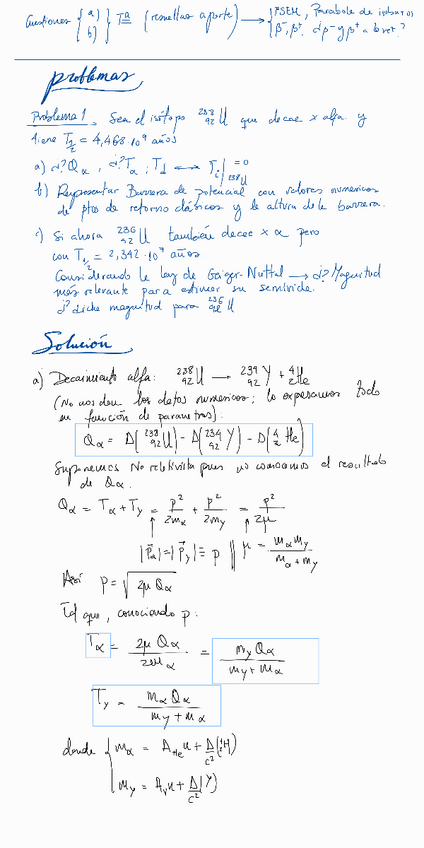 Cuestiones { a) b) } Tª (resueltas aparte) → { FSEM, Parábola de isóbaros
β⁻, β⁺. ¿β⁻ y β⁺ a la vez?
Problemas
Problema 1. Sea el isótopo ²³⁸₉₂U que decae x alfa y
tiene T½ = 4,468·10⁹ años
a) ¿? Qα, ¿? Tα; T_Y ← T_i|²³⁸U = 0
b) Representar Barrera de potencial con valores numéricos
de ptos de retorno clásicos y la altura de la barrera.
c) Si ahora ²³⁶₉₂U también decae x α pero
con T½ = 2,342·10⁷ años
Considerando la ley de Geiger-Nuttall → ¿? Magnitud
más relevante para estimar su semivida.
¿? dicha magnitud para ²³⁶₉₂U
Solución
a) Decaimiento alfa: ²³⁸₉₂U → ²³⁴₉₂Y + ⁴₂He
(No nos dan los datos numéricos; lo expresamos todo
en función de parámetros).
Qα = Δ(²³⁸₉₂U) - Δ(²³⁴₉₂Y) - Δ(⁴₂He)
Suponemos No relativista pues no conocemos el resultado
de Qα.
Qα = Tα + T_Y = p²/2mα + p²/2m_Y = p²/2μ
|p⃗α| = |p⃗_Y| ≡ p || μ = mα m_Y / (mα + m_Y)
Así p = √(2μ Qα)
Tal que, conociendo p:
Tα = 2μ Qα / 2mα = m_Y Qα / (m_Y + mα)
T_Y = mα Qα / (m_Y + mα)
donde { mα = A_He u + Δ/c² (⁴₂H)
m_Y = A_Y u + Δ/c² (Y)